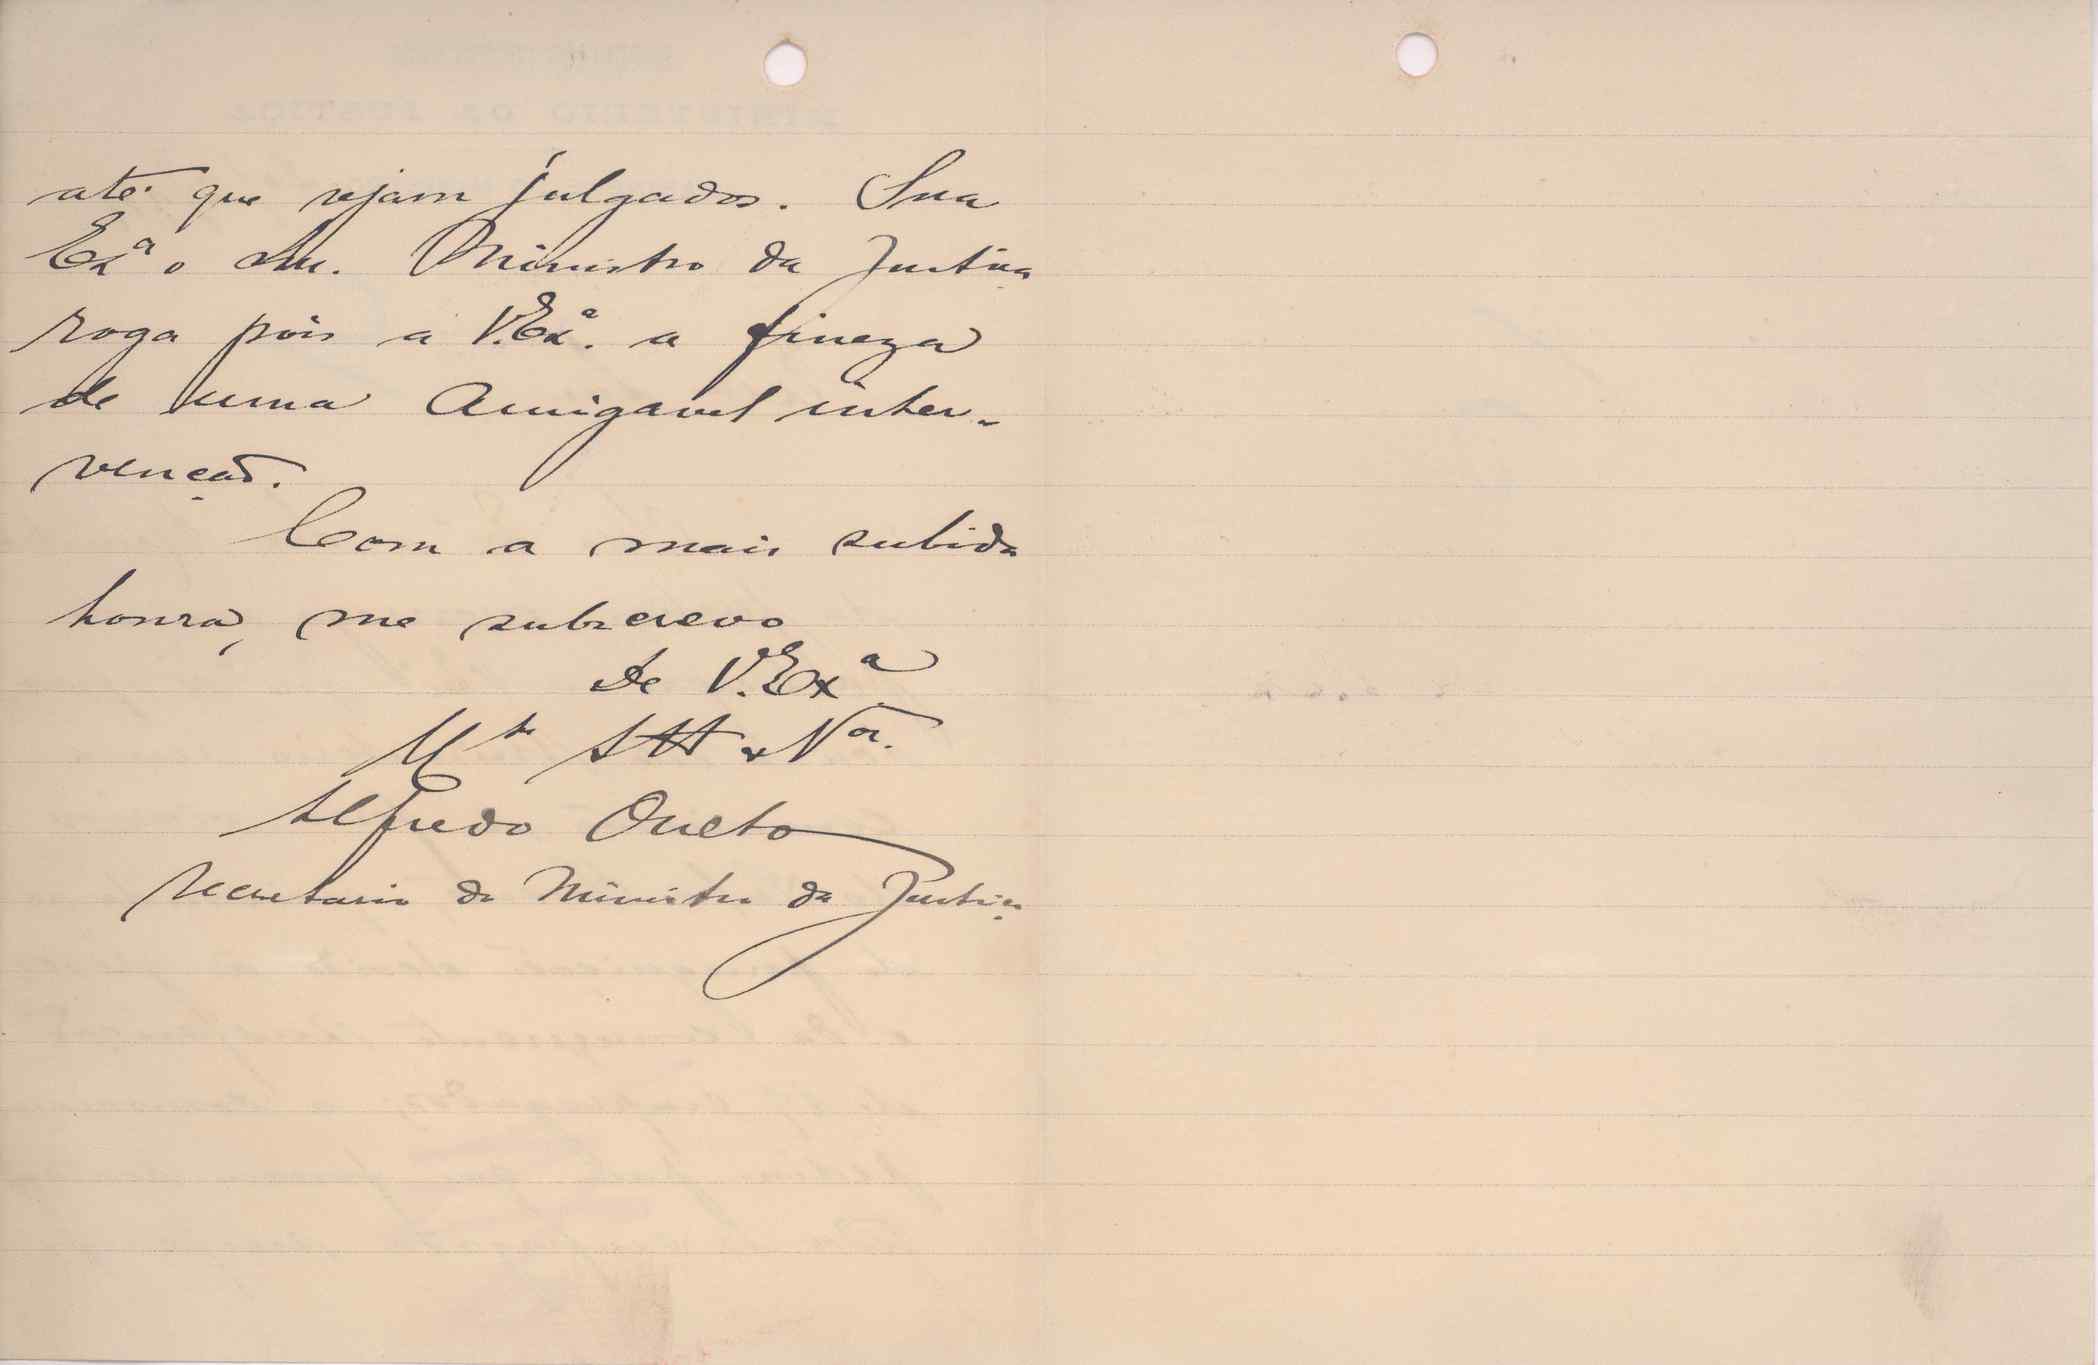 até que sejam julgados. Sua
Exª o Snr. Ministro da Justiça
roga pois a V. Exª. a fineza
de uma amigavel inter-
venção.
Com a mais subida
honra, me subscrevo
De V. Exª
Mto Att e Vor.
Alfredo
secretario do Ministro da Justiça